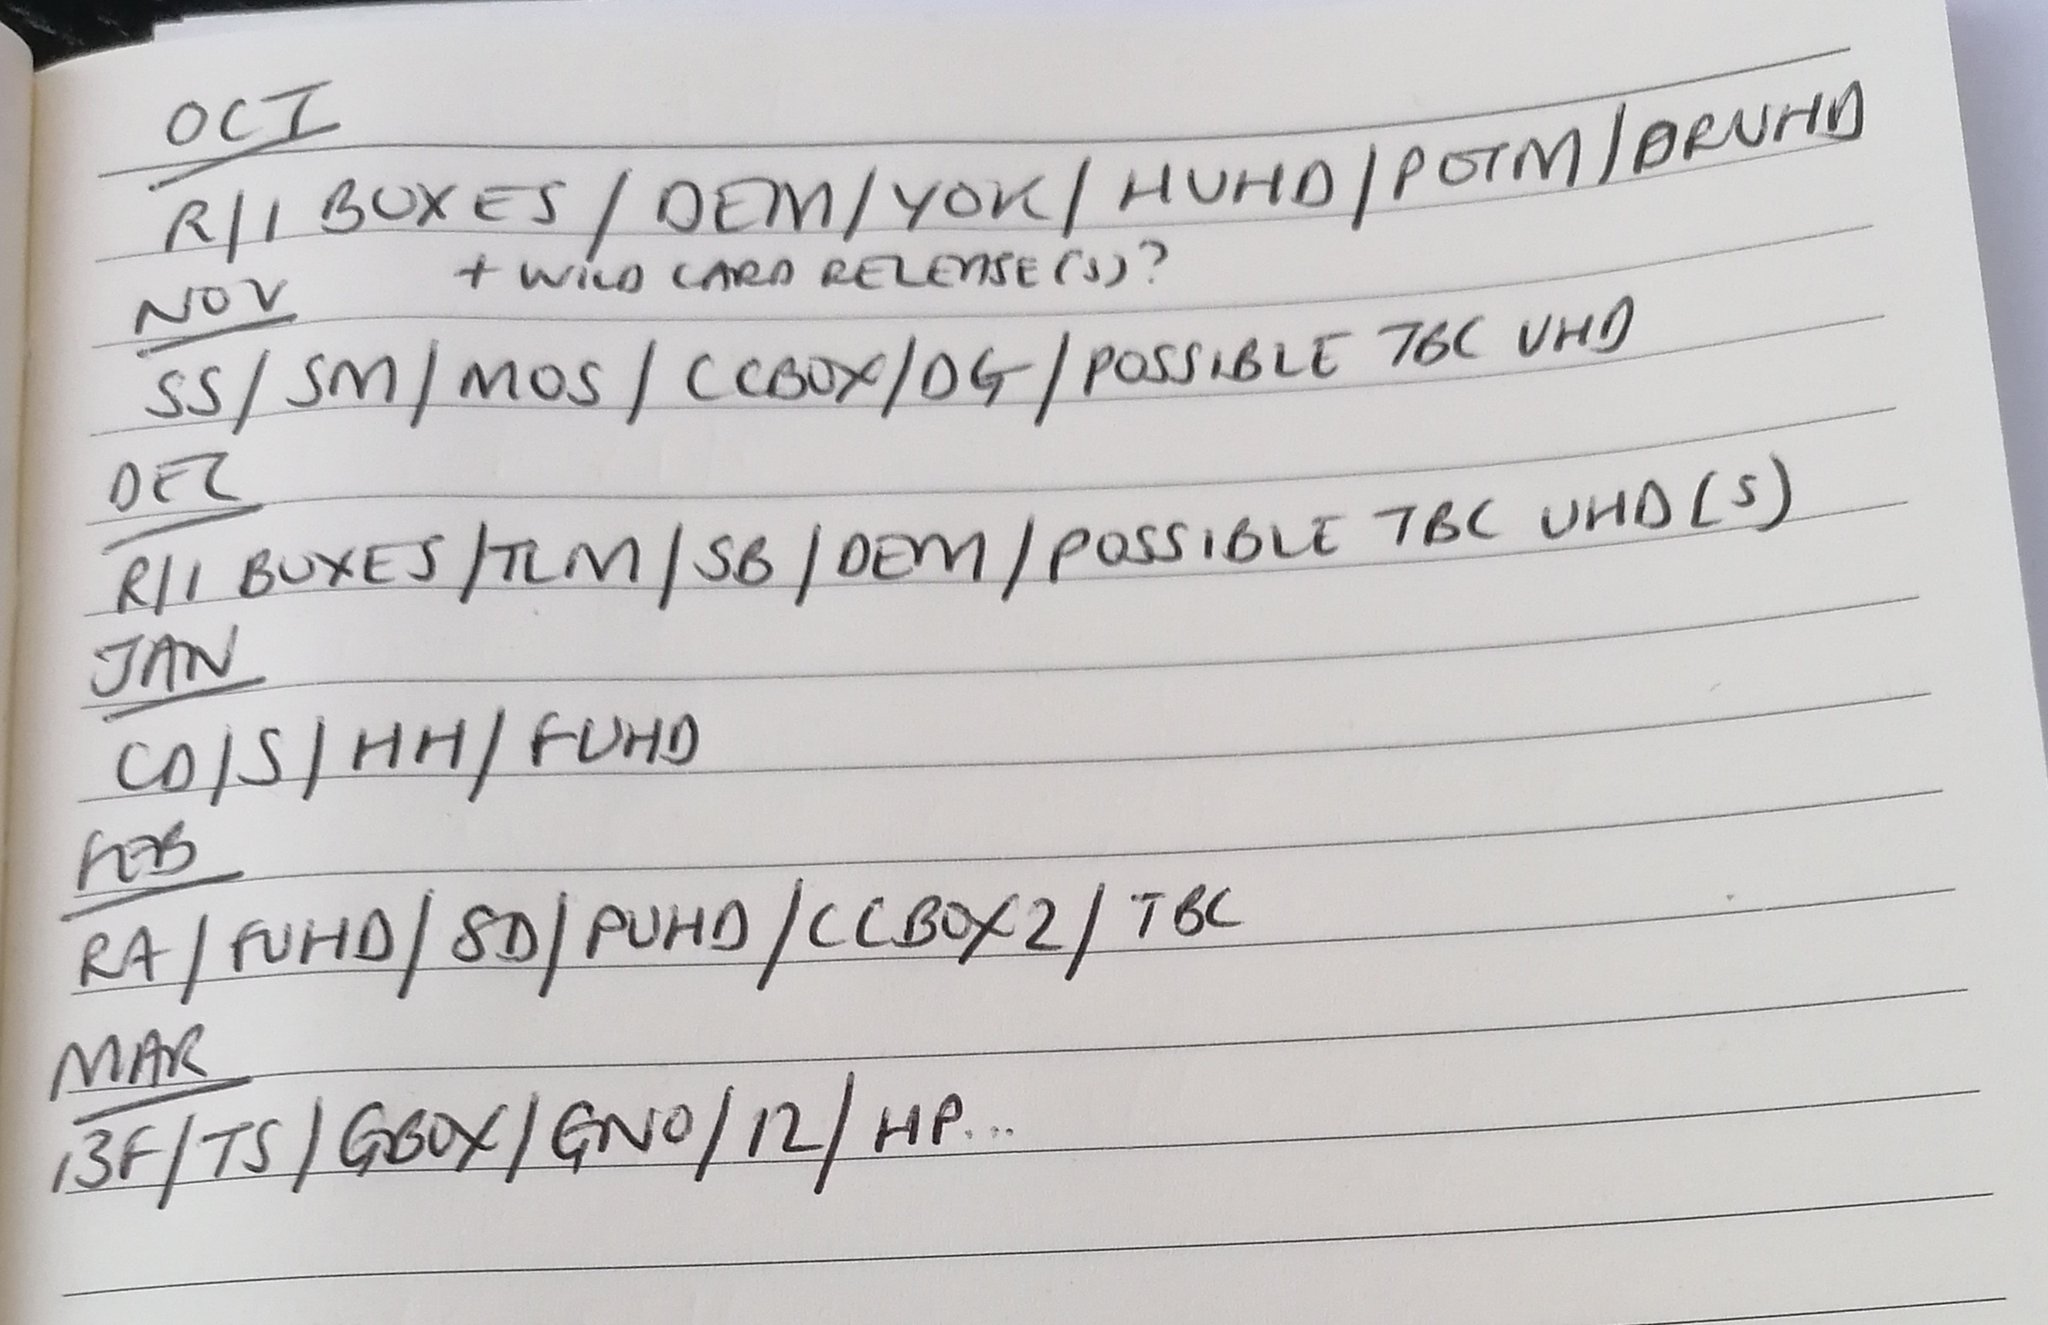 OCT
R/1 BOXES / DEM / YOK / HUHD / POTM / BRUHD
+ WILD CARD RELEASE(S)?
NOV
SS / SM / MOS / CCBOX / DG / POSSIBLE TBC UHD
DEC
R/1 BOXES / TLM / SB / DEM / POSSIBLE TBC UHD(S)
JAN
CD / S / HH / FUHD
FEB
RA / FUHD / SD / PUHD / CCBOX2 / TBC
MAR
13F / TS / GBOX / GNO / 12 / HP...